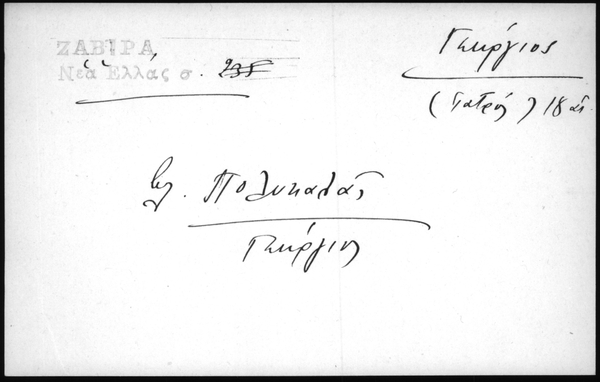 ΖΑΒΙΡΑ
Νέα Ἑλλάς σ. 235
Γεώργιος
(ἰατρός) 18 αἰ.
βλ. Πολυκαλᾶς
Γεώργιος